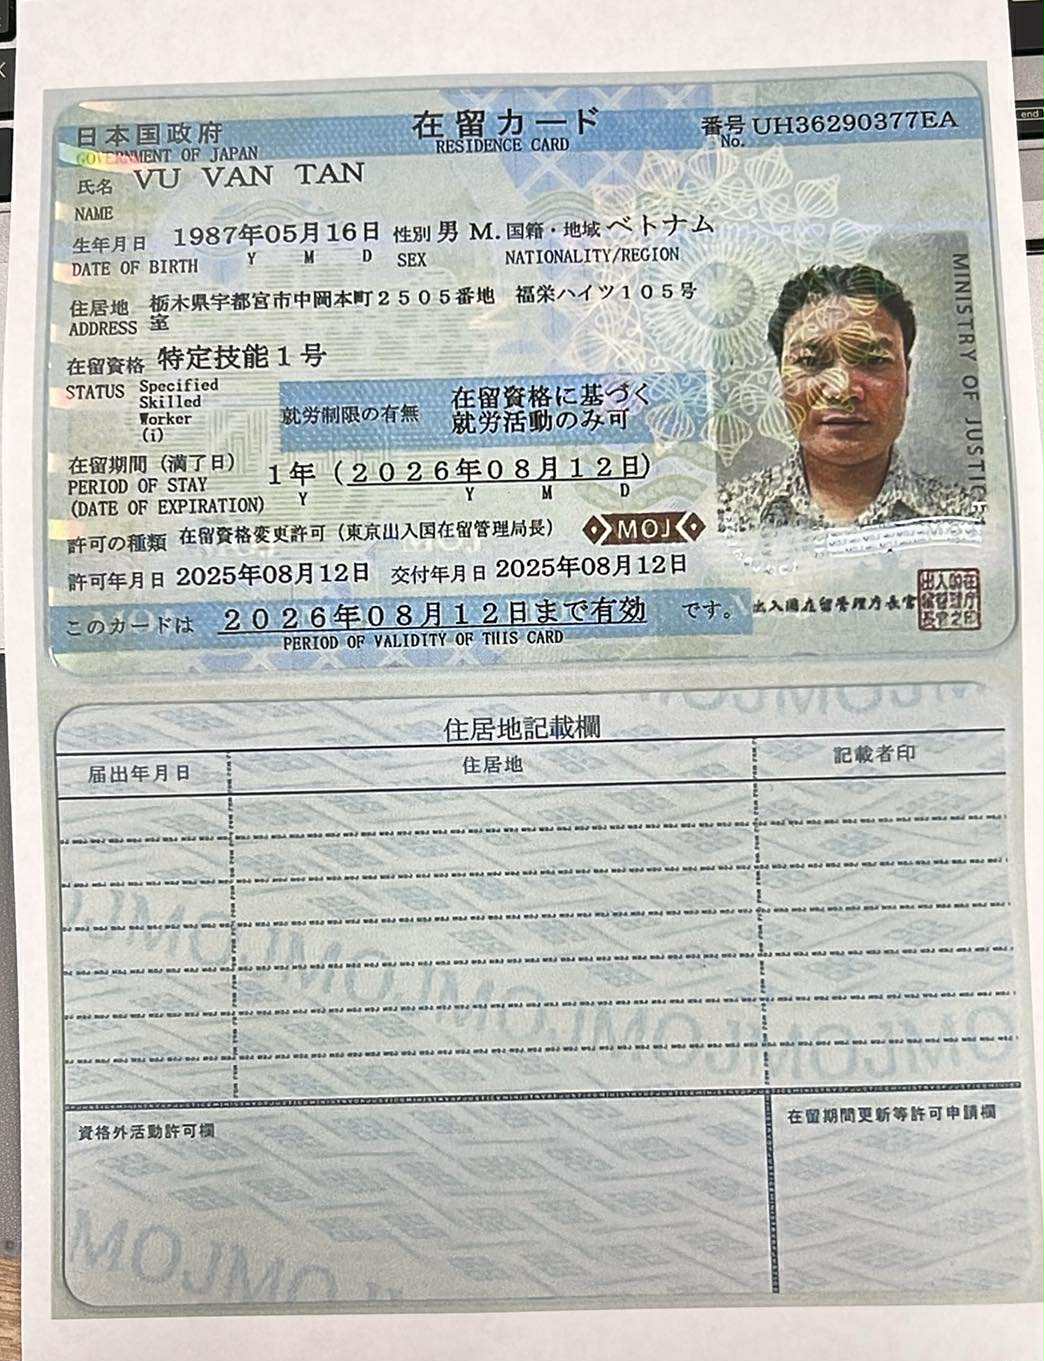 日本国政府
GOVERNMENT OF JAPAN
在留カード
RESIDENCE CARD
番号 UH36290377EA
No.
氏名 VU VAN TAN
NAME
生年月日 1987年05月16日 性別 男 M. 国籍・地域 ベトナム
DATE OF BIRTH Y M D SEX NATIONALITY/REGION
住居地 栃木県宇都宮市中岡本町2505番地 福栄ハイツ105号
ADDRESS 室
在留資格 特定技能1号
STATUS Specified
Skilled
Worker
(i)
就労制限の有無 在留資格に基づく
就労活動のみ可
在留期間(満了日) 1年(2026年08月12日)
PERIOD OF STAY Y Y M D
(DATE OF EXPIRATION)
許可の種類 在留資格変更許可(東京出入国在留管理局長)
MOJ
許可年月日 2025年08月12日 交付年月日 2025年08月12日
このカードは 2026年08月12日まで有効 です。
PERIOD OF VALIDITY OF THIS CARD
出入国在留管理庁長官
MINISTRY OF JUSTICE
住居地記載欄
届出年月日 住居地 記載者印
資格外活動許可欄
在留期間更新等許可申請欄